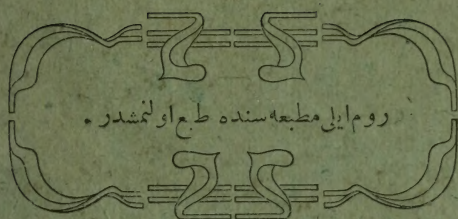 روم ایلی مطبعه سنده طبع اولنمشدر .